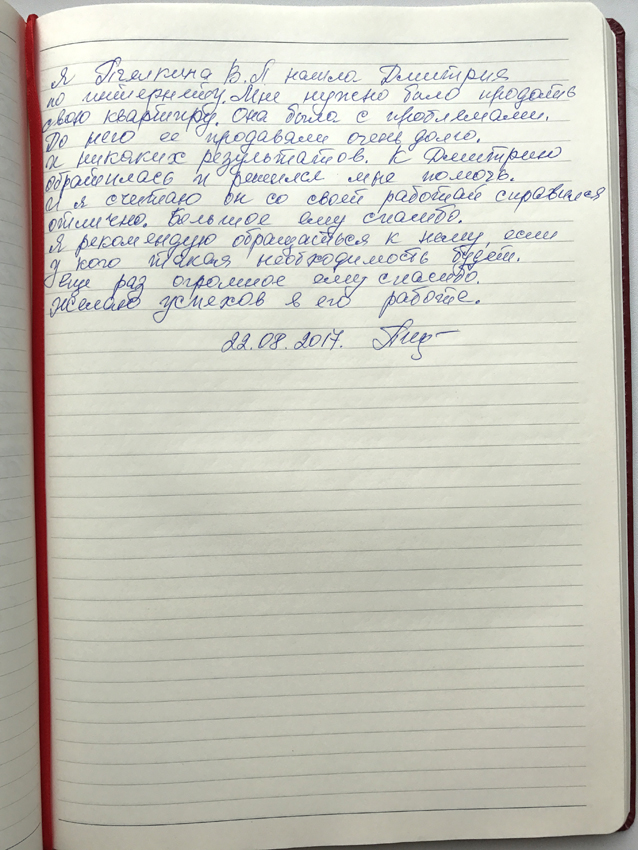 Я Пчёлкина В.Л нашла Дмитрия
по интернету. Мне нужно было продать
свою квартиру. Она была с проблемами.
До него ее продавали очень долго.
и никаких результатов. К Дмитрию
обратилась и решился мне помочь.
И я считаю он со своей работай справился
отлично. Большое ему спасибо.
Я рекомендую обращаться к нему, если
у кого такая необходимость будет.
Еще раз огромное ему спасибо.
Желаю успехов в его работе.
22.08.2017.